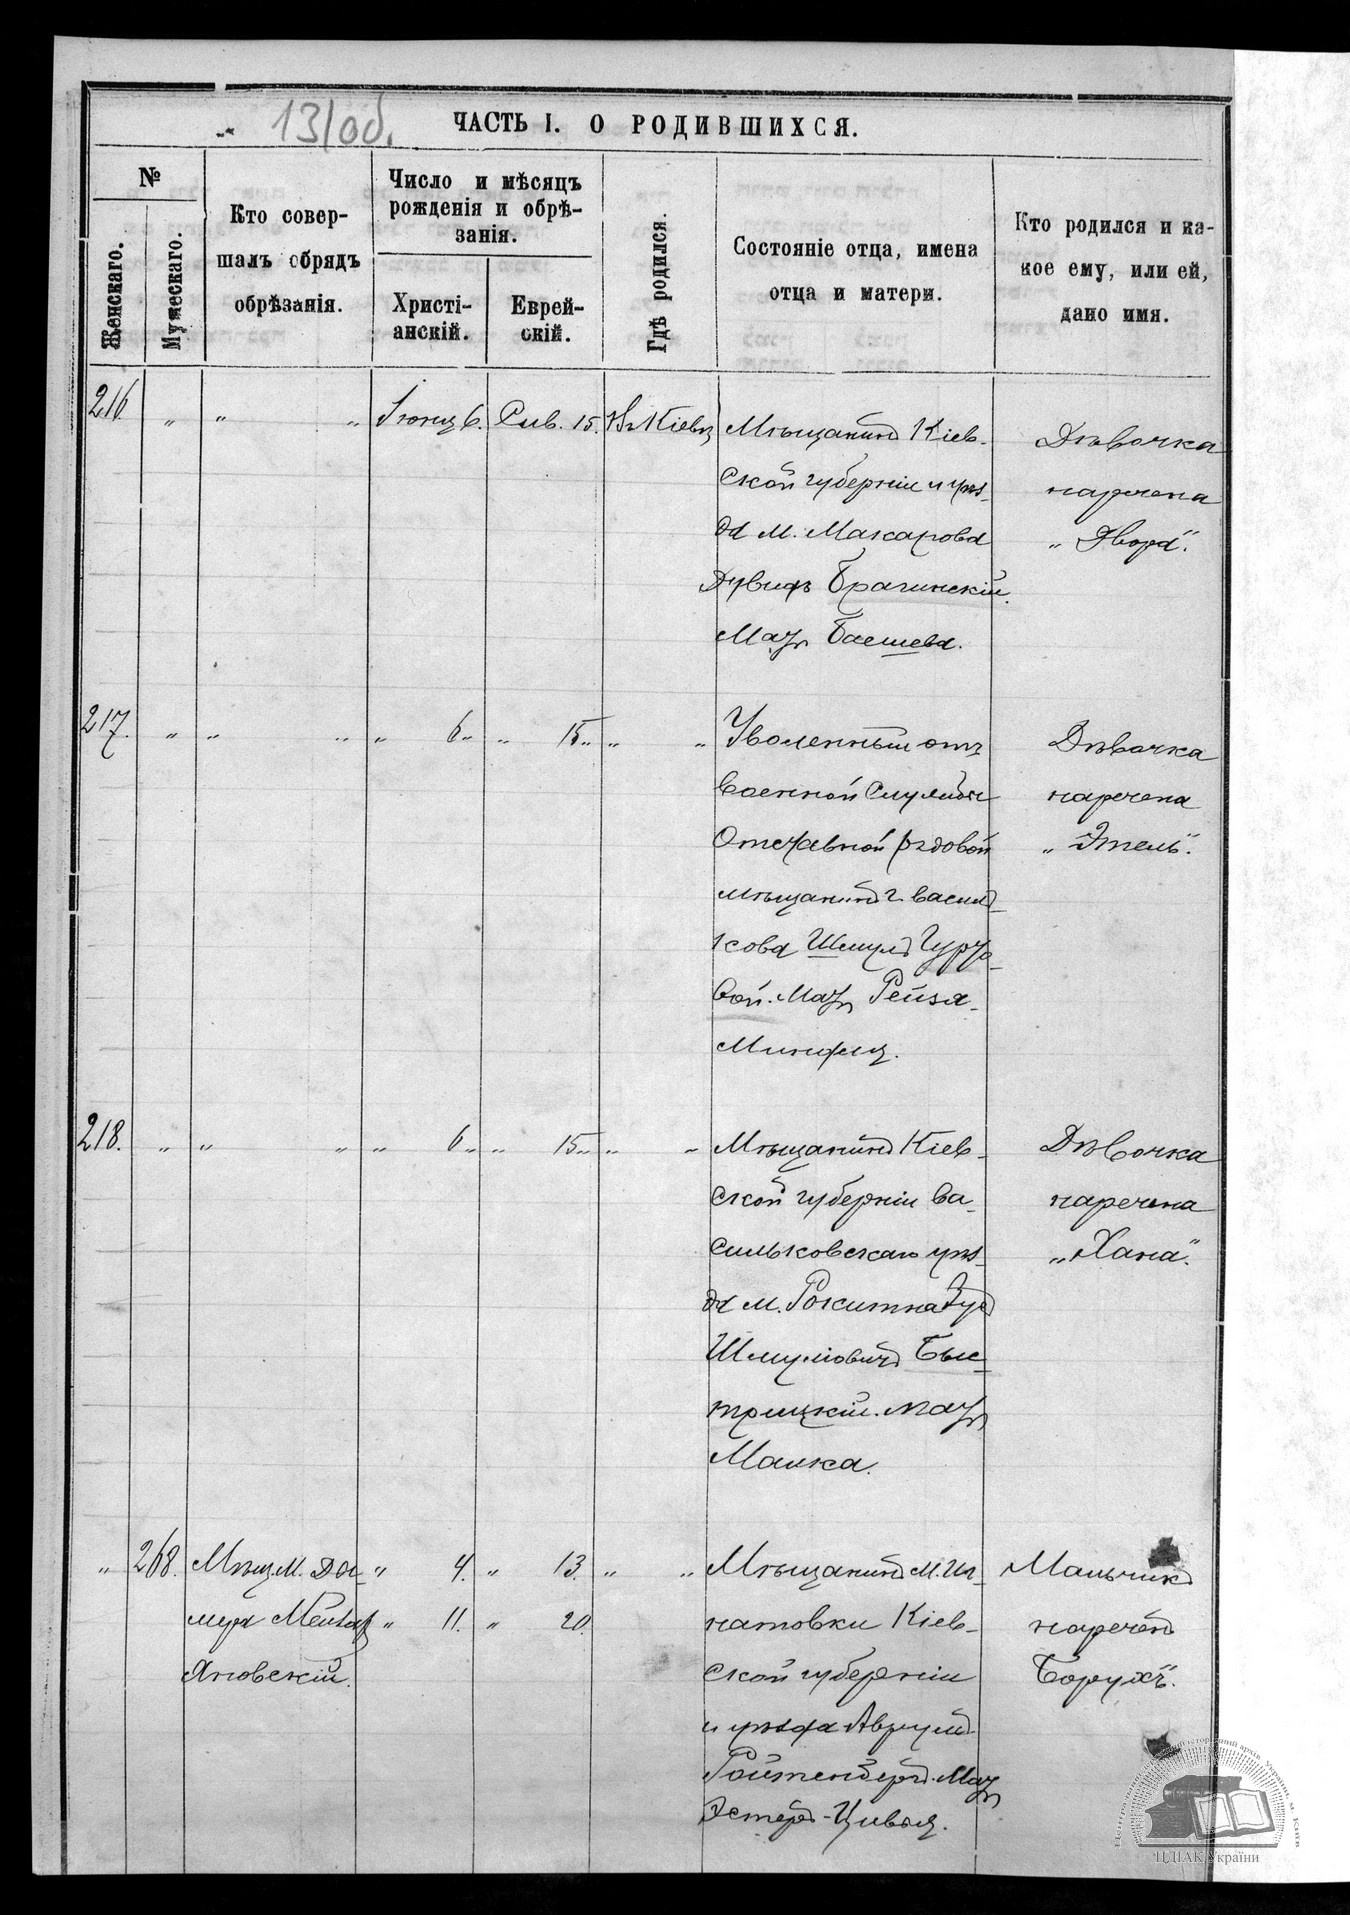 131об.
ЧАСТЬ I. О РОДИВШИХСЯ.
№
Женскаго.
Мужескаго.
Кто совер-
шалъ обрядъ
обрѣзанія.
Число и мѣсяцъ
рожденія и обрѣ-
занія.
Христі-
анскій.
Еврей-
скій.
Гдѣ родился.
Состояніе отца, имена
отца и матери.
Кто родился и ка-
кое ему, или ей,
дано имя.
216 „ „ „ Іюня 6. Сив. 15. Въ Кіевѣ
Мѣщанинъ Кіев-
ской губерніи и уѣз-
да м. Макарова
Дувидъ Брагинскій.
Мать Басшева.
Дѣвочка
наречена
„Двора“.
217. „ „ „ „ 6. „ 15. „ „
Уволенный отъ
военной службы
Отставной рядовой
мѣщанинъ г. Василь-
кова Шмулъ Гурто-
вой. Мать Рейзя-
Миндля.
Дѣвочка
наречена
„Этель“.
218. „ „ „ „ 6. „ 15. „ „
Мѣщанинъ Кіев-
ской губерніи Ва-
сильковскаго уѣз-
да м. Рокитна
Шмуліовичъ Бы-
стрицкій. Мать
Малка.
Дѣвочка
наречена
„Хана“.
„ 268. Мѣщ. м. „ 4. „ 13. „ „
„ 11. „ 20.
Яновскій.
Мѣщанинъ м. Иг-
натовки Кіев-
ской губерніи
и уѣзда Аврумъ
Ройтенбергъ. Мать
Эстеръ-Цивья.
Мальчикъ
нареченъ
Борухъ“.
ЦДІАК України